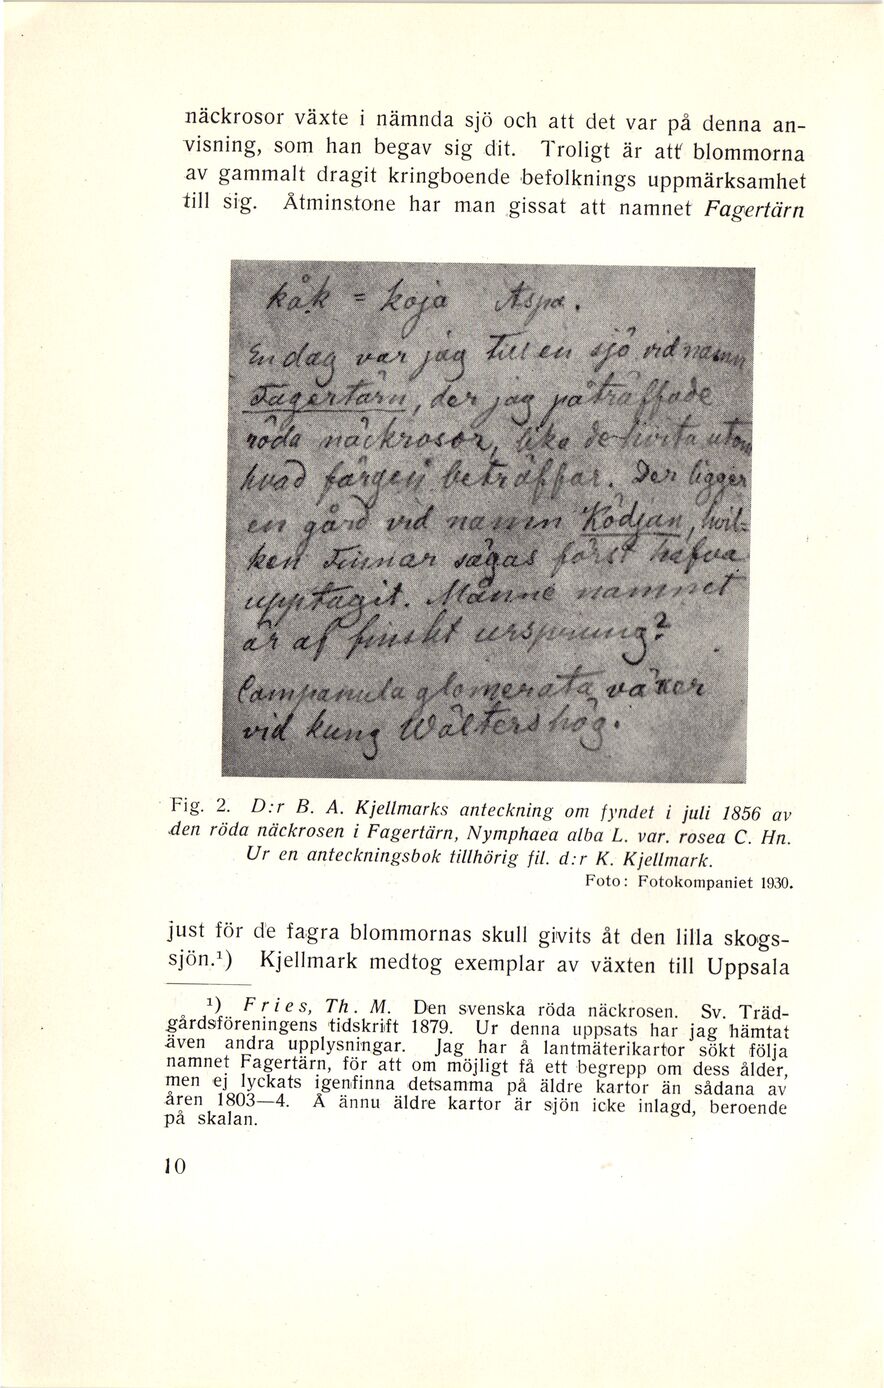 näckrosor växte i nämnda sjö och att det var på denna an-
visning, som han begav sig dit. Troligt är att blommorna
av gammalt dragit kringboende befolknings uppmärksamhet
till sig. Åtminstone har man gissat att namnet Fagertärn
kåk = koja Aspa.
En dag var jag till en sjö vid namn
Fagertärn, der jag påträffade
röda näckrosor, lika de hvita utom
hvad färgen beträffar. Der ligger
en gård vid namn Kodjan, hvil-
ken Finnar sägas först hafva
upptagit. Månne namnet
är af finskt ursprung?
Campanula glomerata växer
vid kung Wälters hög.
Fig. 2. D:r B. A. Kjellmarks anteckning om fyndet i juli 1856 av
den röda näckrosen i Fagertärn, Nymphaea alba L. var. rosea C. Hn.
Ur en anteckningsbok tillhörig fil. d:r K. Kjellmark.
Foto: Fotokompaniet 1930.
just för de fagra blommornas skull givits åt den lilla skogs-
sjön.¹) Kjellmark medtog exemplar av växten till Uppsala
¹) Fries, Th. M. Den svenska röda näckrosen. Sv. Träd-
gårdsföreningens tidskrift 1879. Ur denna uppsats har jag hämtat
även andra upplysningar. Jag har å lantmäterikartor sökt följa
namnet Fagertärn, för att om möjligt få ett begrepp om dess ålder,
men ej lyckats igenfinna detsamma på äldre kartor än sådana av
åren 1803—4. Å ännu äldre kartor är sjön icke inlagd, beroende
på skalan.
10